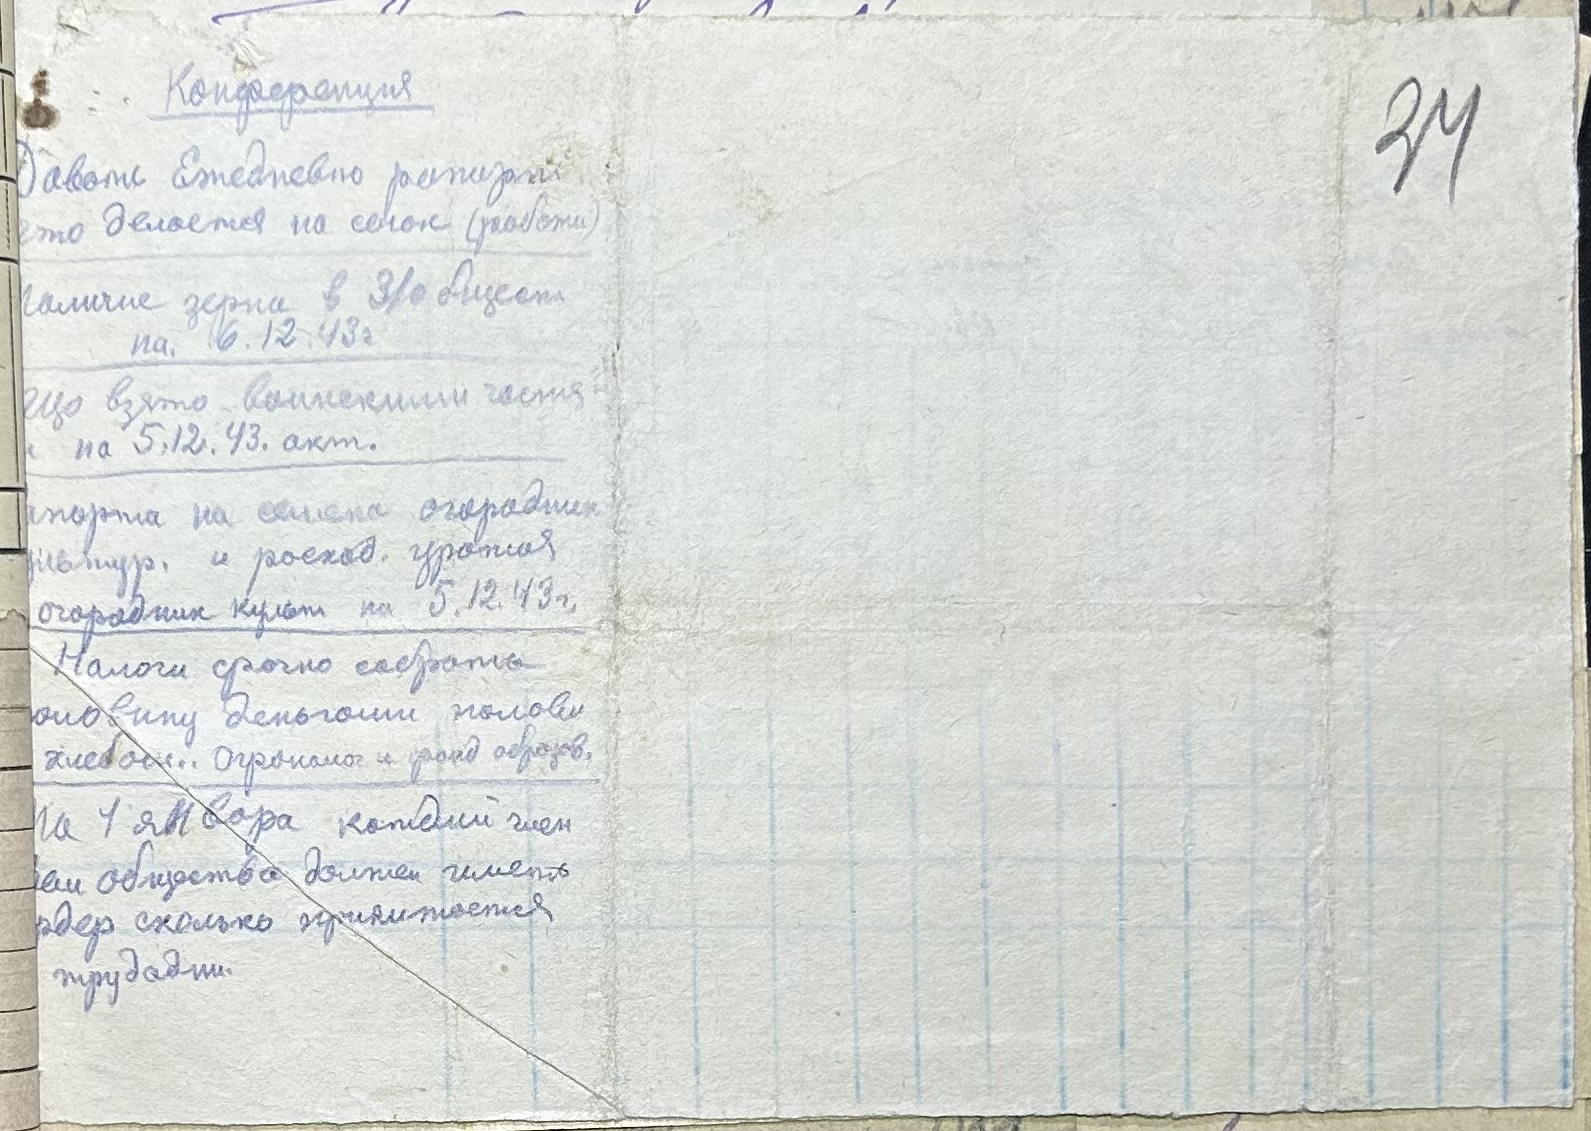 34
Конференция
Давать Ежедневно рапорт
что делается на сегок (работи)
наличие зерна в З/обществ
на. 6.12.43г
що взято воинскими частя
на 5.12.43. акт.
рапорта на семена огородних
культур. и росход. урожая
огородник культ на 5.12.43г.
Налоги срочно собрать
половину деньгами полови
хлебом.. Агроналог и фонд образов.
На 1 января каждий член
зем общества должен иметь
ордер сколько принитается
трудадни.